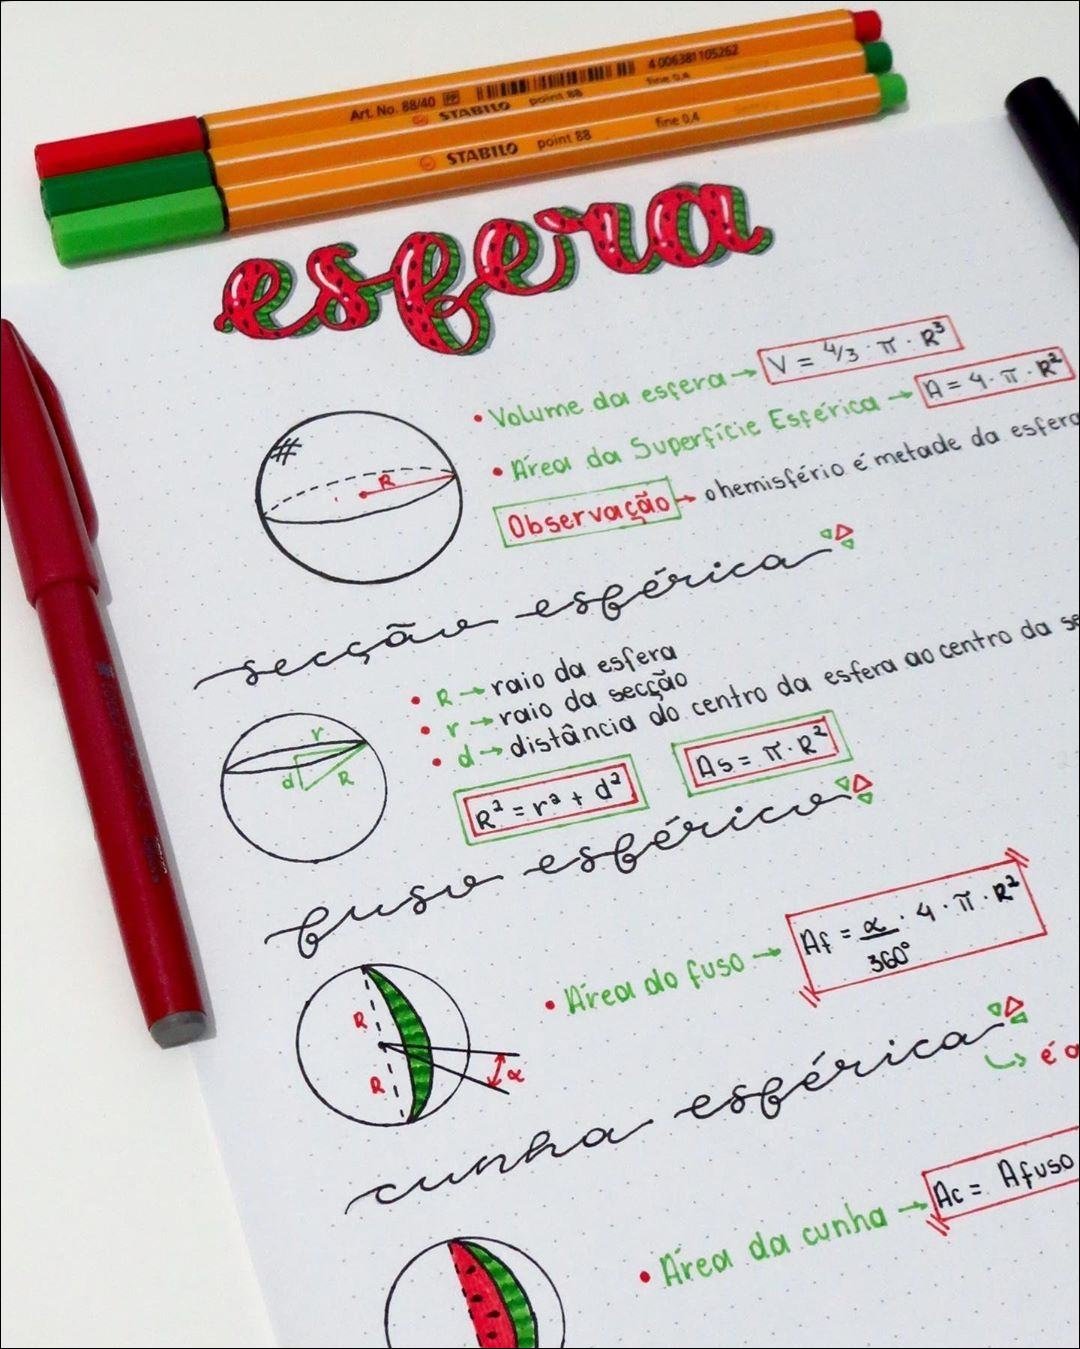 Art. No. 88/40 PP 4 006381 105262
STABILO point 88 fine 0,4
STABILO point 88 fine 0,4
esfera
• Volume da esfera → V = 4/3 · π · R³
• Área da Superfície Esférica → A = 4 · π · R²
Observação → o hemisfério é metade da esfera
R
secção esférica
• R → raio da esfera
• r → raio da secção
• d → distância do centro da esfera ao centro da se
r
d
R
R² = r² + d²
As = π · R²
fuso esférico
• Área do fuso → Af = α/360° · 4 · π · R²
R
R
α
cunha esférica
↳ é a
• Área da cunha → Ac = Afuso